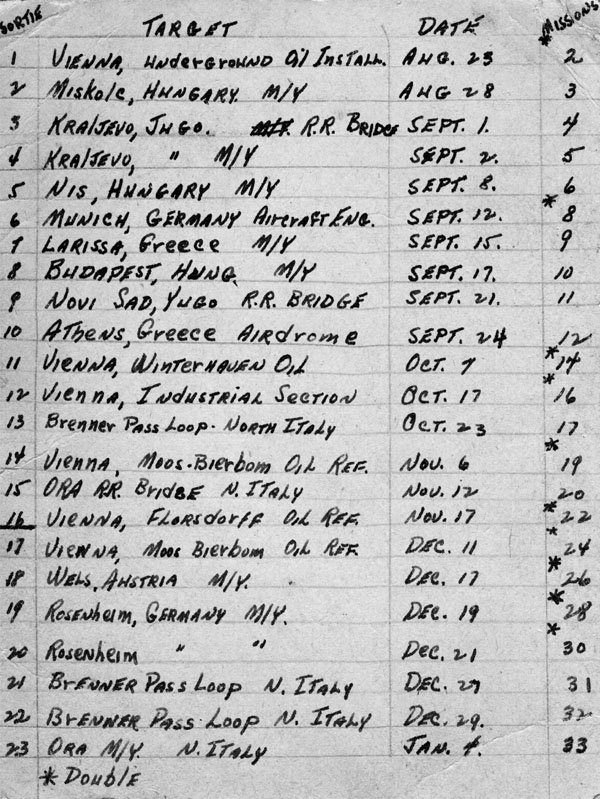 SORTIE TARGET DATE *MISSIONS
1 VIENNA, UNDERGROUND OIL INSTALL. AUG. 23 2
2 MISKOLC, HUNGARY M/Y AUG 28 3
3 KRALJEVO, JUGO. M/Y. R.R. BRIDGE SEPT. 1. 4
4 KRALJEVO, " M/Y SEPT. 2. 5
5 NIS, HUNGARY M/Y SEPT. 8. 6
6 MUNICH, GERMANY AIRCRAFT ENG. SEPT. 12. * 8
7 LARISSA, Greece M/Y SEPT. 15. 9
8 BUDAPEST, HUNG. M/Y SEPT. 17. 10
9 NOVI SAD, YUGO R.R. BRIDGE SEPT. 21. 11
10 AtHens, Greece AIRdrome SEPT. 24 12
11 VIENNA, WINTERHAVEN OIL OCT. 7 * 14
12 VIENNA, INDUSTRIAL SECTION OCT. 17 * 16
13 Brenner PASS LOOP - NORTH ITALY OCT. 23 17
14 VIENNA, MOOS-BIERBOM OIL REF. NOV. 6 * 19
15 ORA R.R. BRIDGE N. ITALY NOV. 12 20
16 VIENNA, FLORSDORFF OIL REF. NOV. 17 * 22
17 VIENNA, MOOS BIERBOM OIL REF. DEC. 11 * 24
18 WELS, AUSTRIA M/Y. DEC. 17 * 26
19 ROSENHEIM, GERMANY M/Y. DEC. 19 * 28
20 ROSENHEIM " " DEC. 21 * 30
21 BRENNER PASS LOOP N. ITALY DEC. 27 31
22 BRENNER PASS LOOP N. ITALY DEC. 29. 32
23 ORA M/Y. N. ITALY JAN. 4. 33
* Double